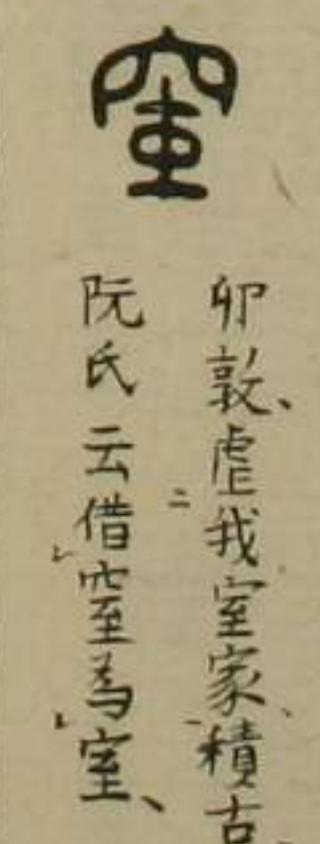 窒
卯敦、虐我室家、積古、
阮氏云借窒為室、